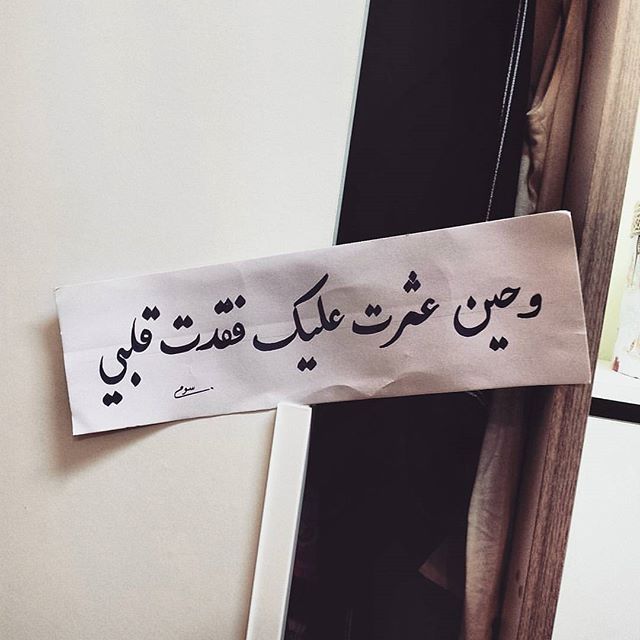 وحين عثرت عليك فقدت قلبي